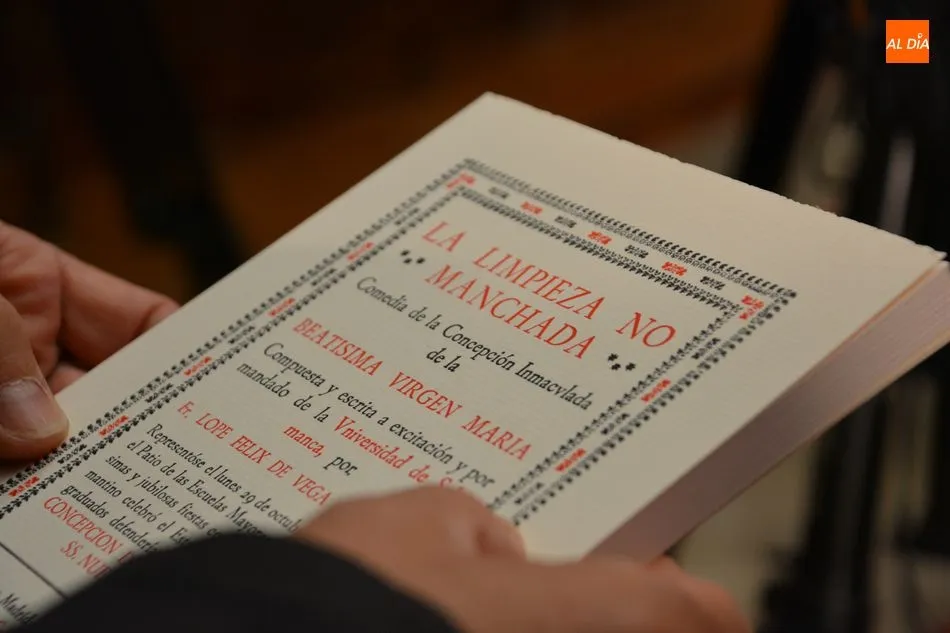 AL DÍA
LA LIMPIEZA NO
MANCHADA
Comedia de la Concepción Inmacvlada
de la
BEATISIMA VIRGEN MARIA
Compuesta y escrita a excitación y por
mandado de la Vniversidad de
manca, por
Fr. LOPE FELIX DE VEGA
Representóse el lunes 29 de
el Patio de las Escuelas
simas y jubilosas fiestas
mantino celebró el
graduados
CONCEPCION
SS.
Madrid